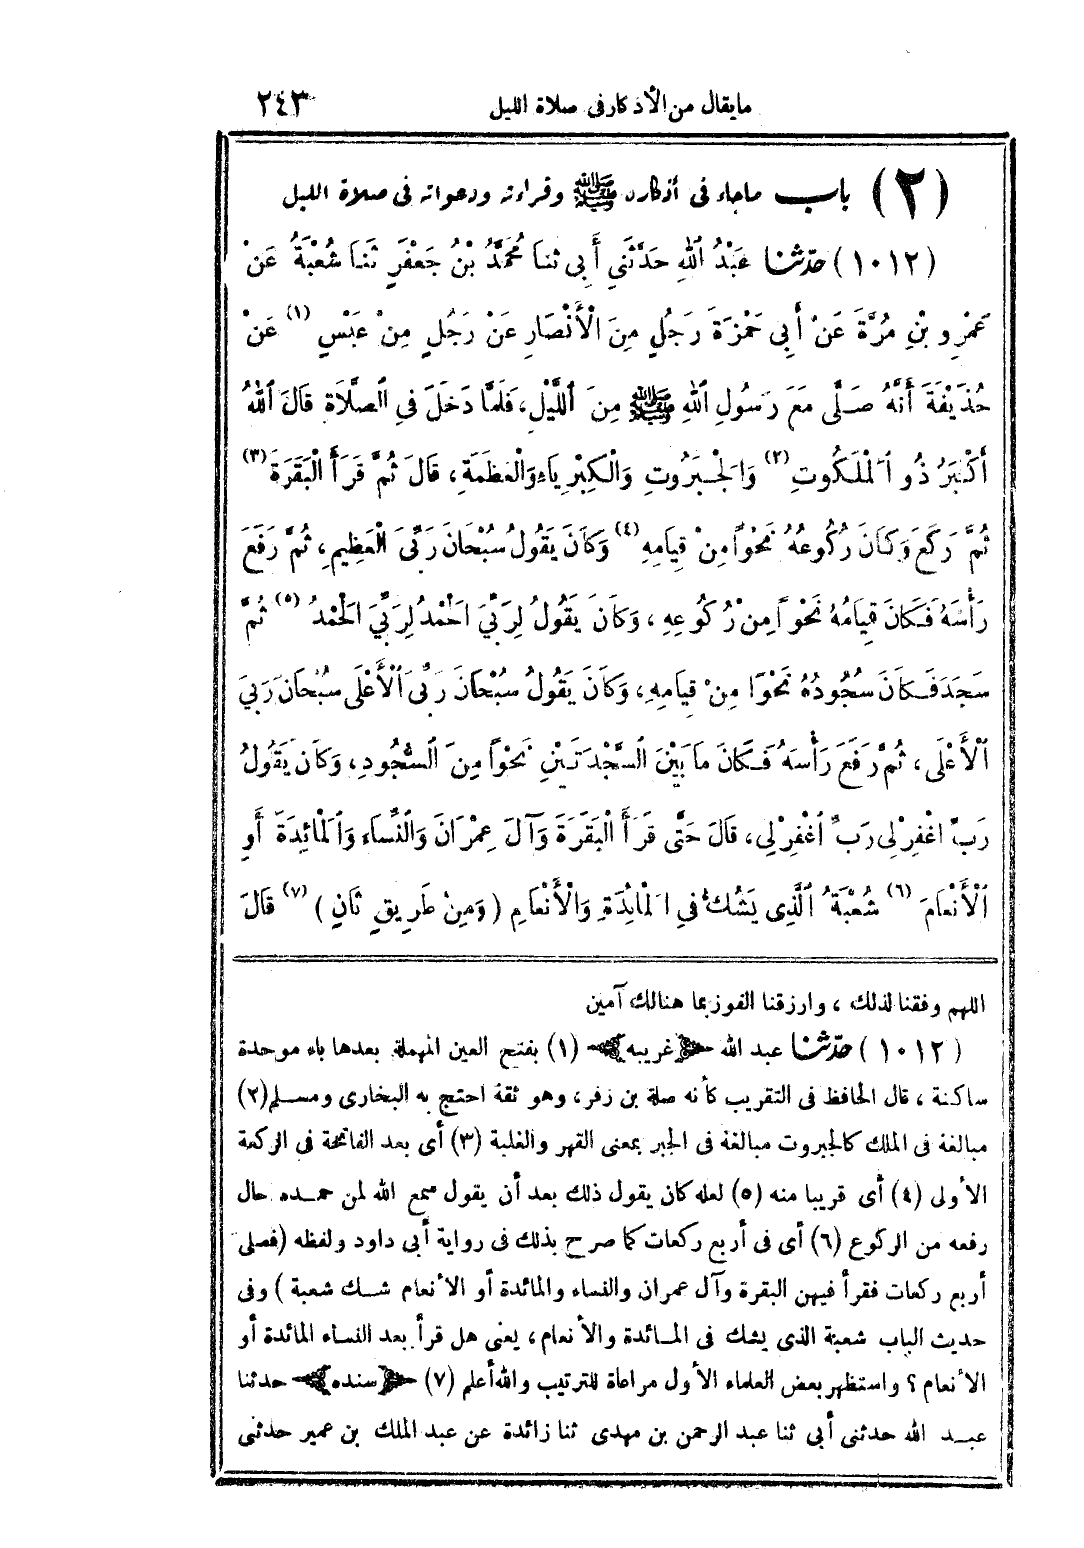 ما يقال من الأذكار فى صلاة الليل ٢٤٣
(٢) باب ماجاء فى أذكاره ﷺ وقراءته ودعواته فى صلاة الليل
(١٠١٢) حدّثنا عَبْدُ اللهِ حَدَّثَنِي أَبِي ثنا مُحَمَّدُ بْنُ جَعْفَرٍ ثَنَا شُعْبَةُ عَنْ
عَمْرِو بْنِ مُرَّةَ عَنْ أَبِي حَمْزَةَ رَجُلٍ مِنَ الْأَنْصَارِ عَنْ رَجُلٍ مِنْ عَبْسٍ (١) عَنْ
حُذَيْفَةَ أَنَّهُ صَلَّى مَعَ رَسُولِ اللهِ ﷺ مِنَ اللَّيْلِ، فَلَمَّا دَخَلَ فِي الصَّلَاةِ قَالَ اللهُ
أَكْبَرُ ذُو الْمَلَكُوتِ (٢) وَالْجَبَرُوتِ وَالْكِبْرِيَاءِ وَالْعَظَمَةِ، قَالَ ثُمَّ قَرَأَ الْبَقَرَةَ (٣)
ثُمَّ رَكَعَ وَكَانَ رُكُوعُهُ نَحْوًا مِنْ قِيَامِهِ (٤) وَكَانَ يَقُولُ سُبْحَانَ رَبِّيَ الْعَظِيمِ، ثُمَّ رَفَعَ
رَأْسَهُ فَكَانَ قِيَامُهُ نَحْوًا مِنْ رُكُوعِهِ، وَكَانَ يَقُولُ لِرَبِّيَ الْحَمْدُ لِرَبِّيَ الْحَمْدُ (٥) ثُمَّ
سَجَدَ فَكَانَ سُجُودُهُ نَحْوًا مِنْ قِيَامِهِ، وَكَانَ يَقُولُ سُبْحَانَ رَبِّيَ الْأَعْلَى سُبْحَانَ رَبِّيَ
الْأَعْلَى، ثُمَّ رَفَعَ رَأْسَهُ فَكَانَ مَا بَيْنَ السَّجْدَتَيْنِ نَحْوًا مِنَ السُّجُودِ، وَكَانَ يَقُولُ
رَبِّ اغْفِرْ لِي رَبِّ اغْفِرْ لِي، قَالَ حَتَّى قَرَأَ الْبَقَرَةَ وَآلَ عِمْرَانَ وَالنِّسَاءَ وَالْمَائِدَةَ أَوِ
الْأَنْعَامَ (٦) شُعْبَةُ الَّذِي يَشُكُّ فِي الْمَائِدَةِ وَالْأَنْعَامِ (وَمِنْ طَرِيقٍ ثَانٍ) (٧) قَالَ
اللهم وفقنا لذلك، وارزقنا الفوز بما هنالك آمين
(١٠١٢) حدّثنا عبد الله ﴿غريبه﴾ (١) بفتح العين المهملة بعدها باء موحدة
ساكنة، قال الحافظ فى التقريب كأنه صلة بن زفر، وهو ثقة احتج به البخارى ومسلم (٢)
مبالغة فى الملك كالجبروت مبالغة فى الجبر بمعنى القهر والغلبة (٣) أى بعد الفاتحة فى الركعة
الأولى (٤) أى قريبا منه (٥) لعله كان يقول ذلك بعد أن يقول سمع الله لمن حمده حال
رفعه من الركوع (٦) أى فى أربع ركعات كما صرح بذلك فى رواية أبى داود ولفظه (فصلى
أربع ركعات فقرأ فيهن البقرة وآل عمران والنساء والمائدة أو الأنعام شك شعبة) وفى
حديث الباب شعبة الذى يشك فى المائدة والأنعام، يعنى هل قرأ بعد النساء المائدة أو
الأنعام؟ واستظهر بعض العلماء الأول مراعاة للترتيب والله أعلم (٧) ﴿سنده﴾ حدثنا
عبد الله حدثنى أبى ثنا عبد الرحمن بن مهدى ثنا زائدة عن عبد الملك بن عمير حدثنى